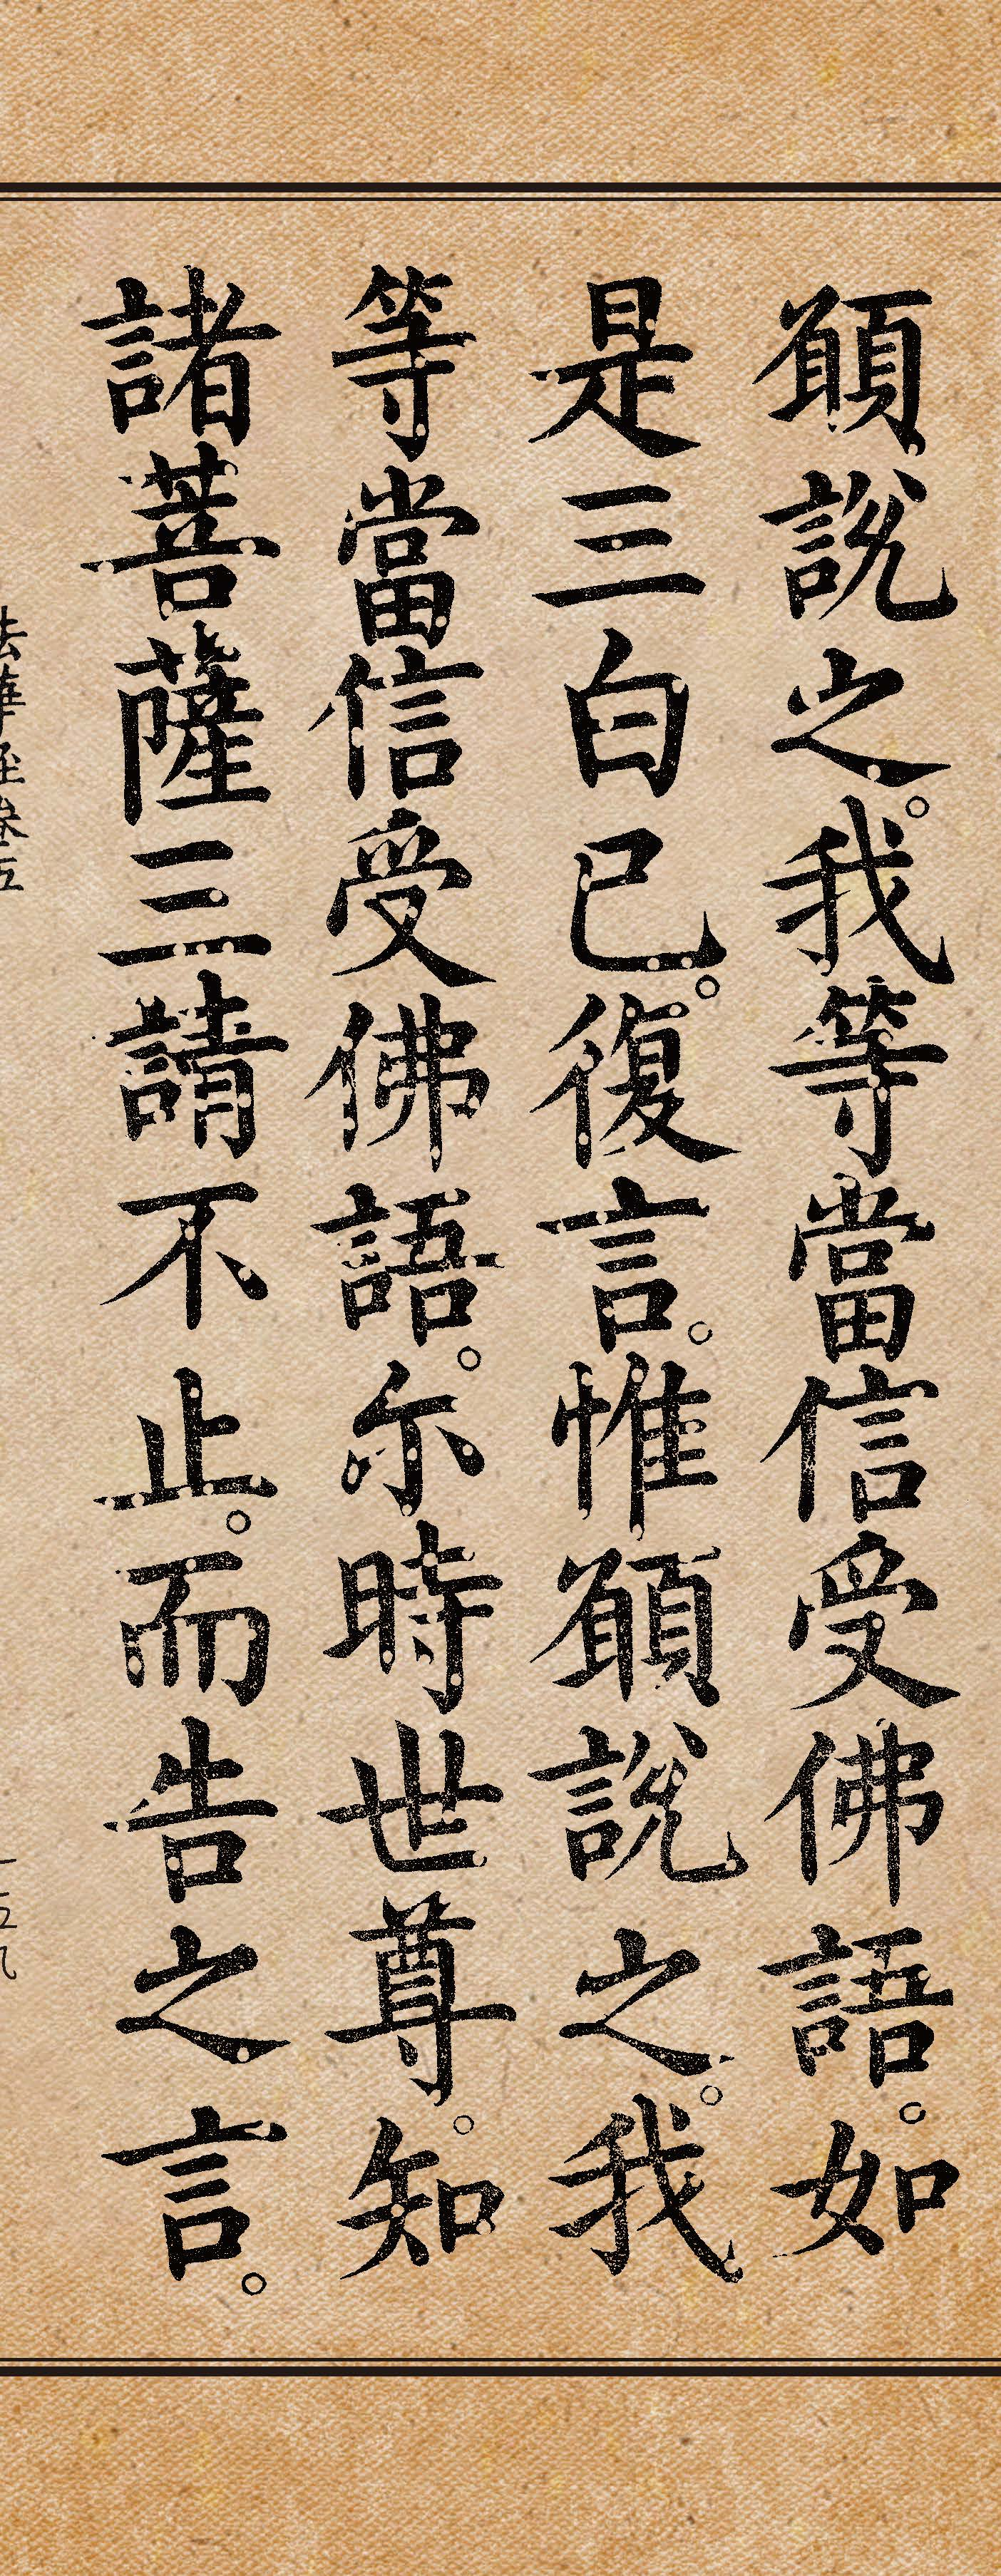 願說之。我等當信受佛語。如
是三白已。復言。惟願說之。我
等當信受佛語。尒時世尊。知
諸菩薩三請不止。而告之言。
法華經卷五
一五九